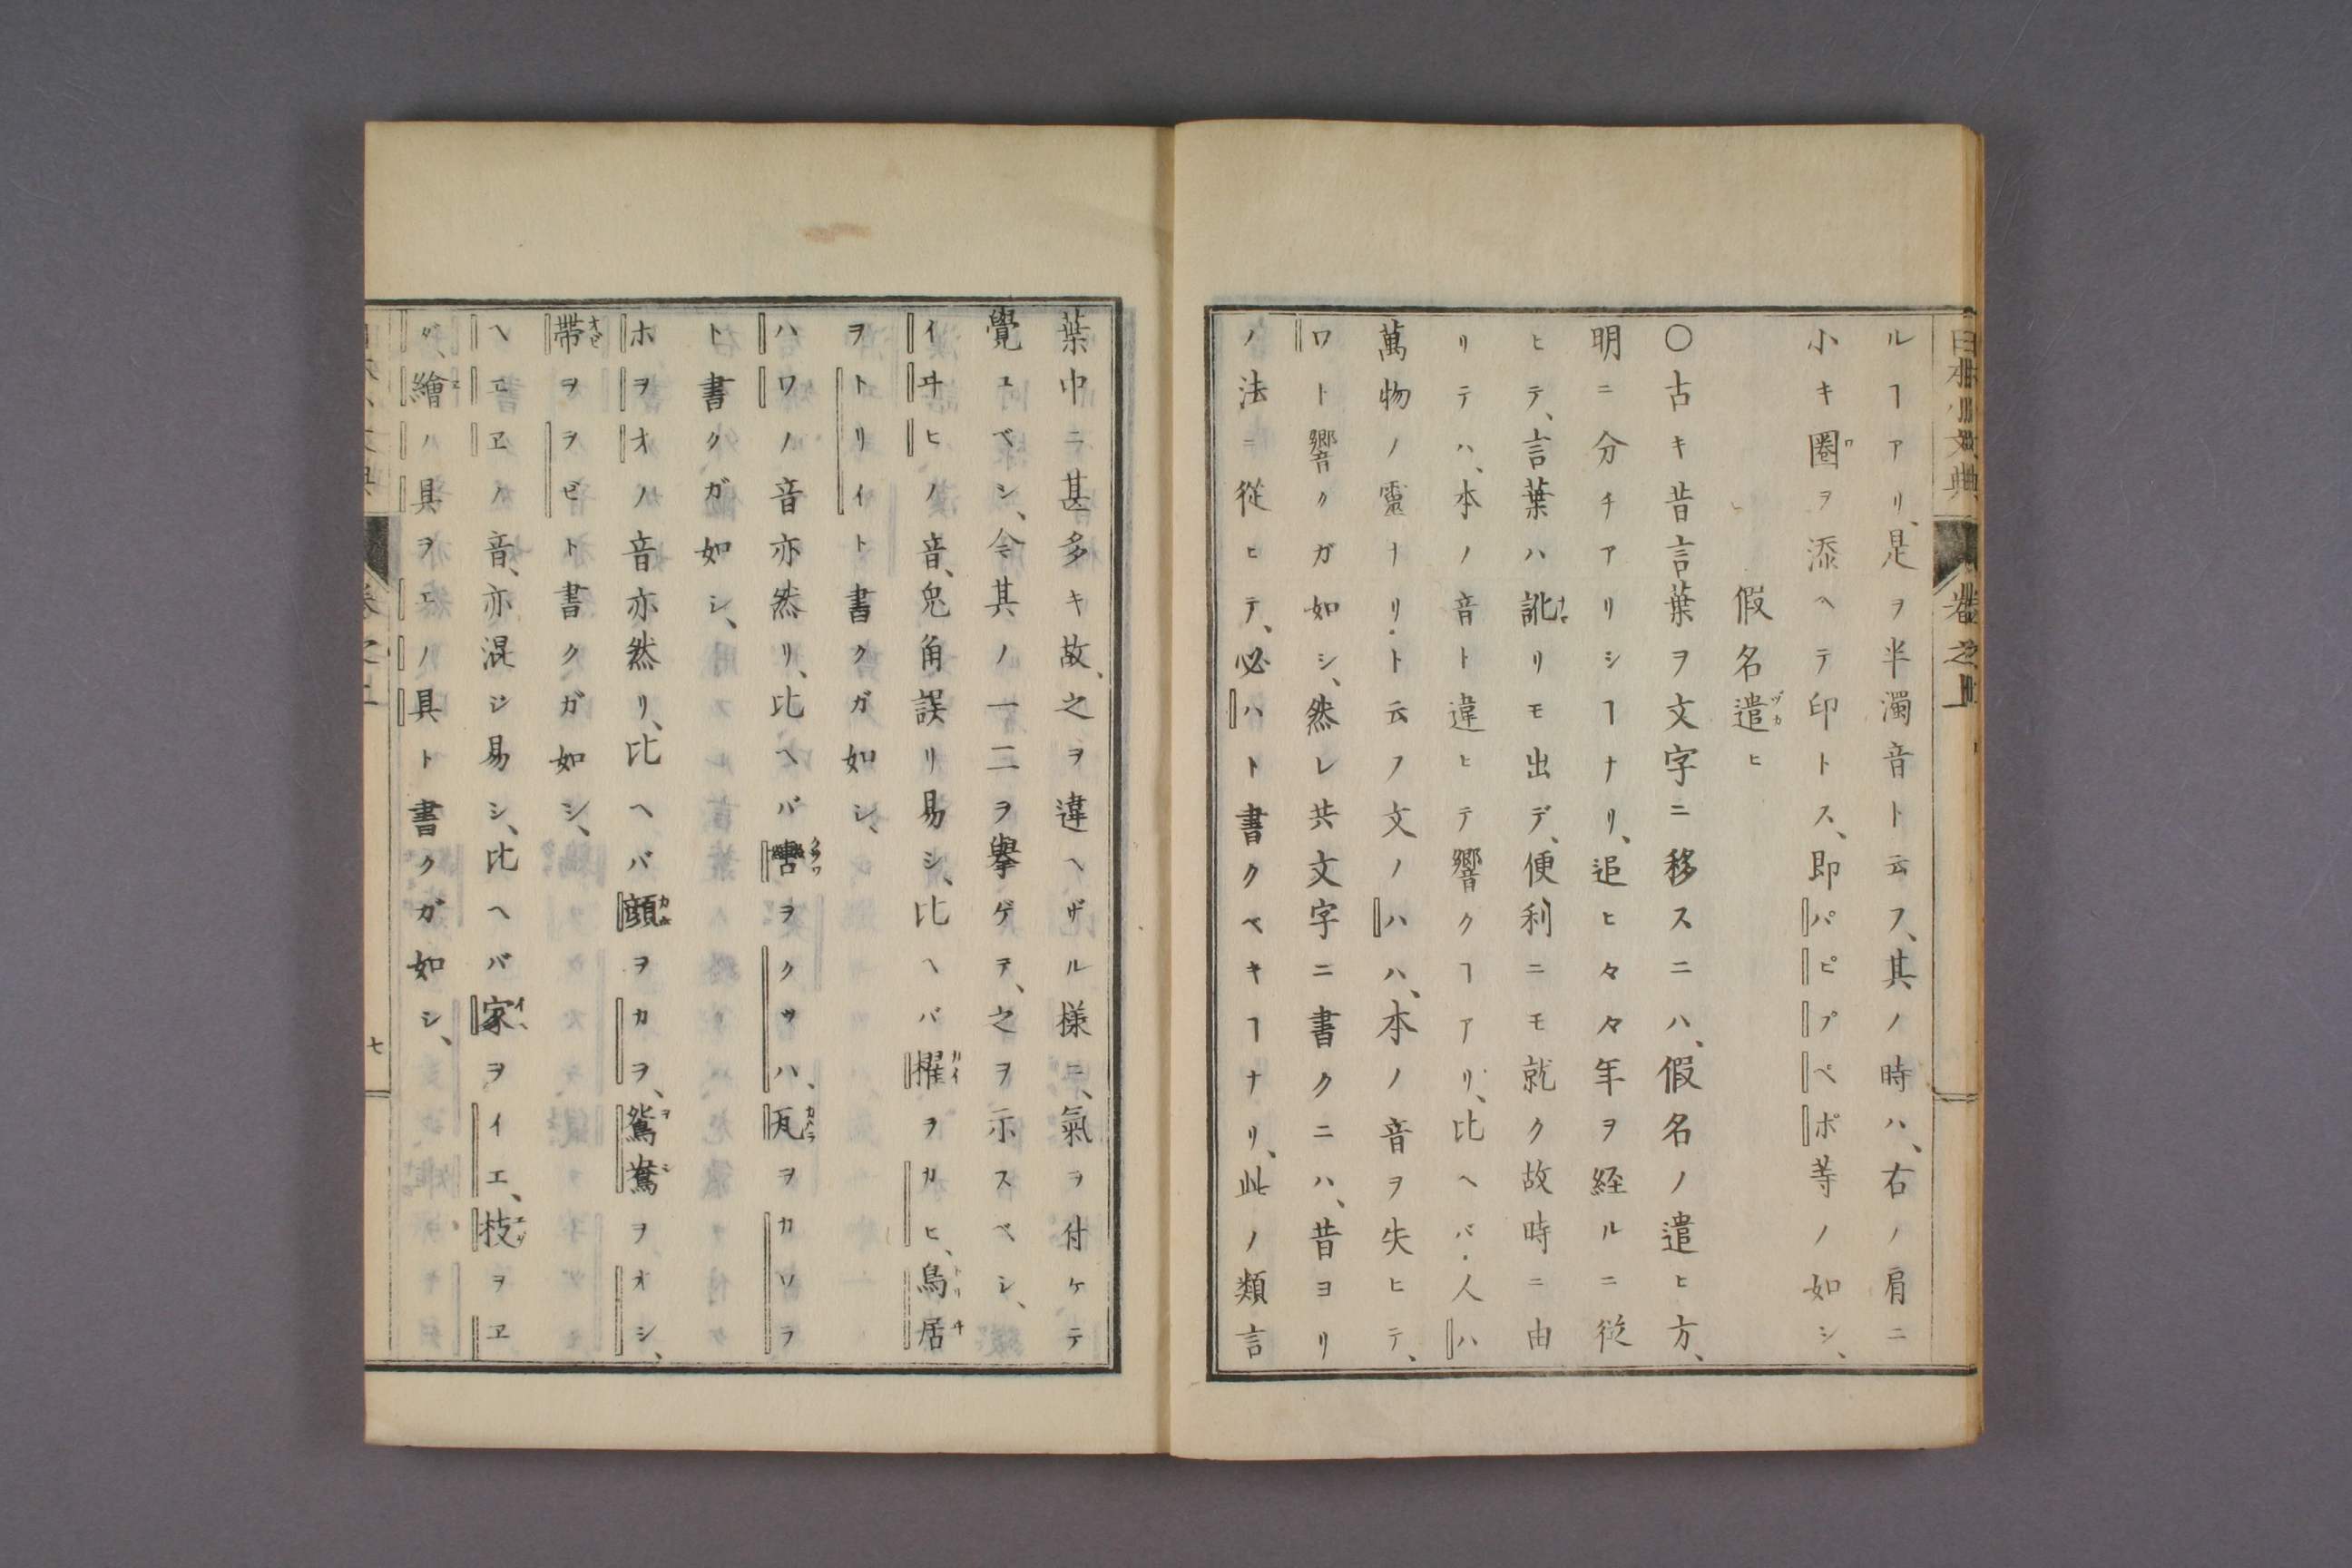 ルヿアリ、是ヲ半濁音ト云フ、其ノ時ハ、右ノ肩ニ
小キ圏ヲ添ヘテ印トス、即パピプペポ等ノ如シ、
假名遣ヒ
〇古キ昔言葉ヲ文字ニ移スニハ、假名ノ遣ヒ方、
明ニ分チアリシヿナリ、追ヒ々々年ヲ経ルニ従
ヒテ、言葉ハ訛リモ出デ、便利ニモ就ク故時ニ由
リテハ、本ノ音ト違ヒテ響クヿアリ、比ヘバ・人ハ
萬物ノ靈ナリ・ト云フ文ノハハ、本ノ音ヲ失ヒテ、
ワト響クガ如シ、然レ共文字ニ書クニハ、昔ヨリ
ノ法ニ従ヒテ、必ハト書クベキヿナリ、此ノ類言
葉中ニ甚多キ故、之ヲ違ヘザル様ニ、氣ヲ付ケテ
覺ユベシ、今其ノ一二ヲ擧ゲテ、之ヲ示スベシ、
イヰヒノ音、兎角誤リ易シ、比ヘバ櫂ヲカヒ、鳥居
ヲトリイト書クガ如シ、
ハワノ音亦然リ、比ヘバ轡ヲクツハ、瓦ヲカワラ
ト書クガ如シ、
ホヲオノ音亦然リ、比ヘバ顔ヲカヲ、鴛鴦ヲオシ、
帯ヲヲビト書クガ如シ、
ヘエヱノ音、亦混ジ易シ、比ヘバ家ヲイエ、枝ヲヱ
ダ、繪ノ具ヲエノ具ト書クガ如シ、
七
日本小文典 巻之上